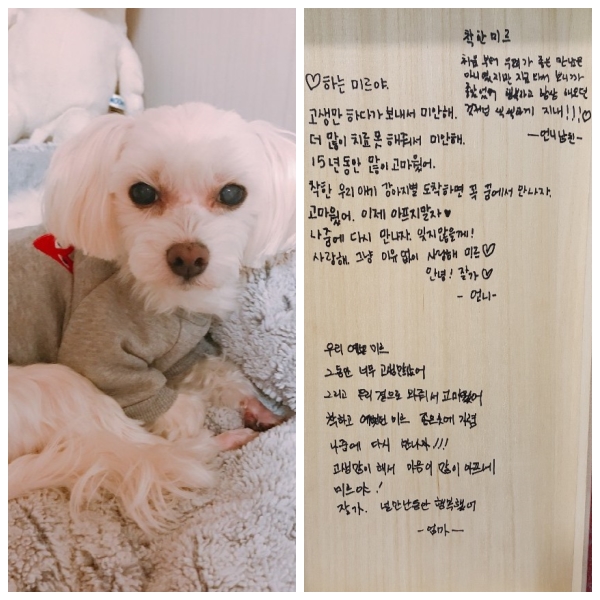 착한 미르
처음 봤어 우리가 좋은 만남은
아니였지만 지금 와서 보니까
좋았었어 행복하고 남남 해오던
것처럼 씩씩하게 지내!!!♡
-언니남친-
♡하는 미르야.
고생만 하다가 보내서 미안해.
더 많이 치료 못 해줘서 미안해.
15년동안 많이 고마웠어.
착한 우리 애기 강아지별 도착하면 꼭 꿈에서 만나자.
고마웠어. 이제 아프지말자♥
나중에 다시 만나자. 잊지않을게!
사랑해. 그냥 이유 없이 사랑해 미르♡
안녕! 잘가♡
-언니-
우리 예쁜 미르
그동안 너무 고생많았어
그리고 우리 곁으로 와줘서 고마웠어
착하고 예뻤던 미르
나중에 다시 만나자!!!
고생많이 해서 마음이 많이 아프네
미르야!
잘가. 널만난동안 행복했어
-엄마-